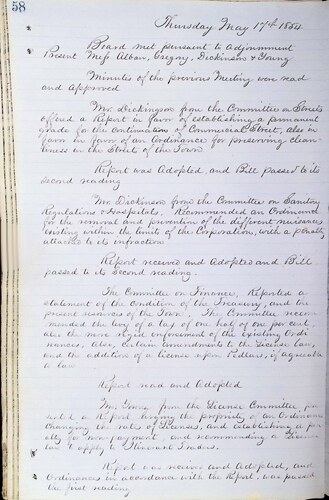 58
Thursday May 17th 1854
Board met pursuant to Adjournment
Present Mess Alban, Gregory, Dickinson & Young
Minutes of the previous Meeting were read
and Approved
Mr. Dickinson from the Committee on Streets
offered a Report in favor of establishing a permanent
grade for the continuation of Commercial Street, also in
favor in favor of an Ordinance for preserving clean-
liness in the Streets of the Town
Report was Adopted, and Bill passed to its
second reading
Mr. Dickinson from the Committee on Sanitary
Regulations & Hospitals. Recommended an Ordinance
for the removal and prevention of the different nuisances
existing within the limits of the Corporation, with a penalty
attached to its infraction
Report received and Adopted and Bill
passed to its Second reading.
The Committee on Finance, Reported a
statement of the condition of the Treasury, and the
present resources of the Town. The Committee recom
mended the levy of a tax of one half of one per cent,
also the more rigid enforcement of the existing Ordi
nances. Also, certain amendments to the License law,
and the addition of a license upon Pedlars, if agreeable
to law
Report read and Adopted
Mr. Young from the License Committee, pre
sented a Report urging the propriety of an Ordinance
changing the rates of Licenses, and establishing a pen
alty for non payment, and recommending a License
to apply to Itinerant Traders.
Report was received and Adopted, and
Ordinances in accordance with the Report, was passed
the first reading